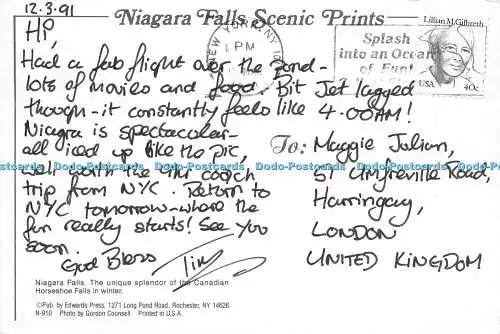 12.3.91
Niagara Falls Scenic Prints
Hi,
Had a fab flight over the pond -
lots of movies and food. Bit Jet lagged
though - it constantly feels like 4.00AM!
Niagra is spectacular -
all iced up like the pic,
well worth the coach
trip from NYC. Return to
NYC tomorrow - where the
fun really starts! See you
soon.
God Bless
Tim
NEW YORK, NY
PM
Splash
into an Ocean
of Fun!
Lillian M. Gilbreth
USA 40c
To: Maggie Julian,
Umfreville Road,
Harringay,
LONDON
UNITED KINGDOM
Niagara Falls. The unique splendor of the Canadian
Horseshoe Falls in winter.
©Pub. by Edwards Press, 1271 Long Pond Road, Rochester, NY 14626
N-910 Photo by Gordon Counsell Printed in U.S.A.
Dodo-Postcards Dodo-Postcards Dodo-Postcards Dodo-Postcards Dodo-Postcards